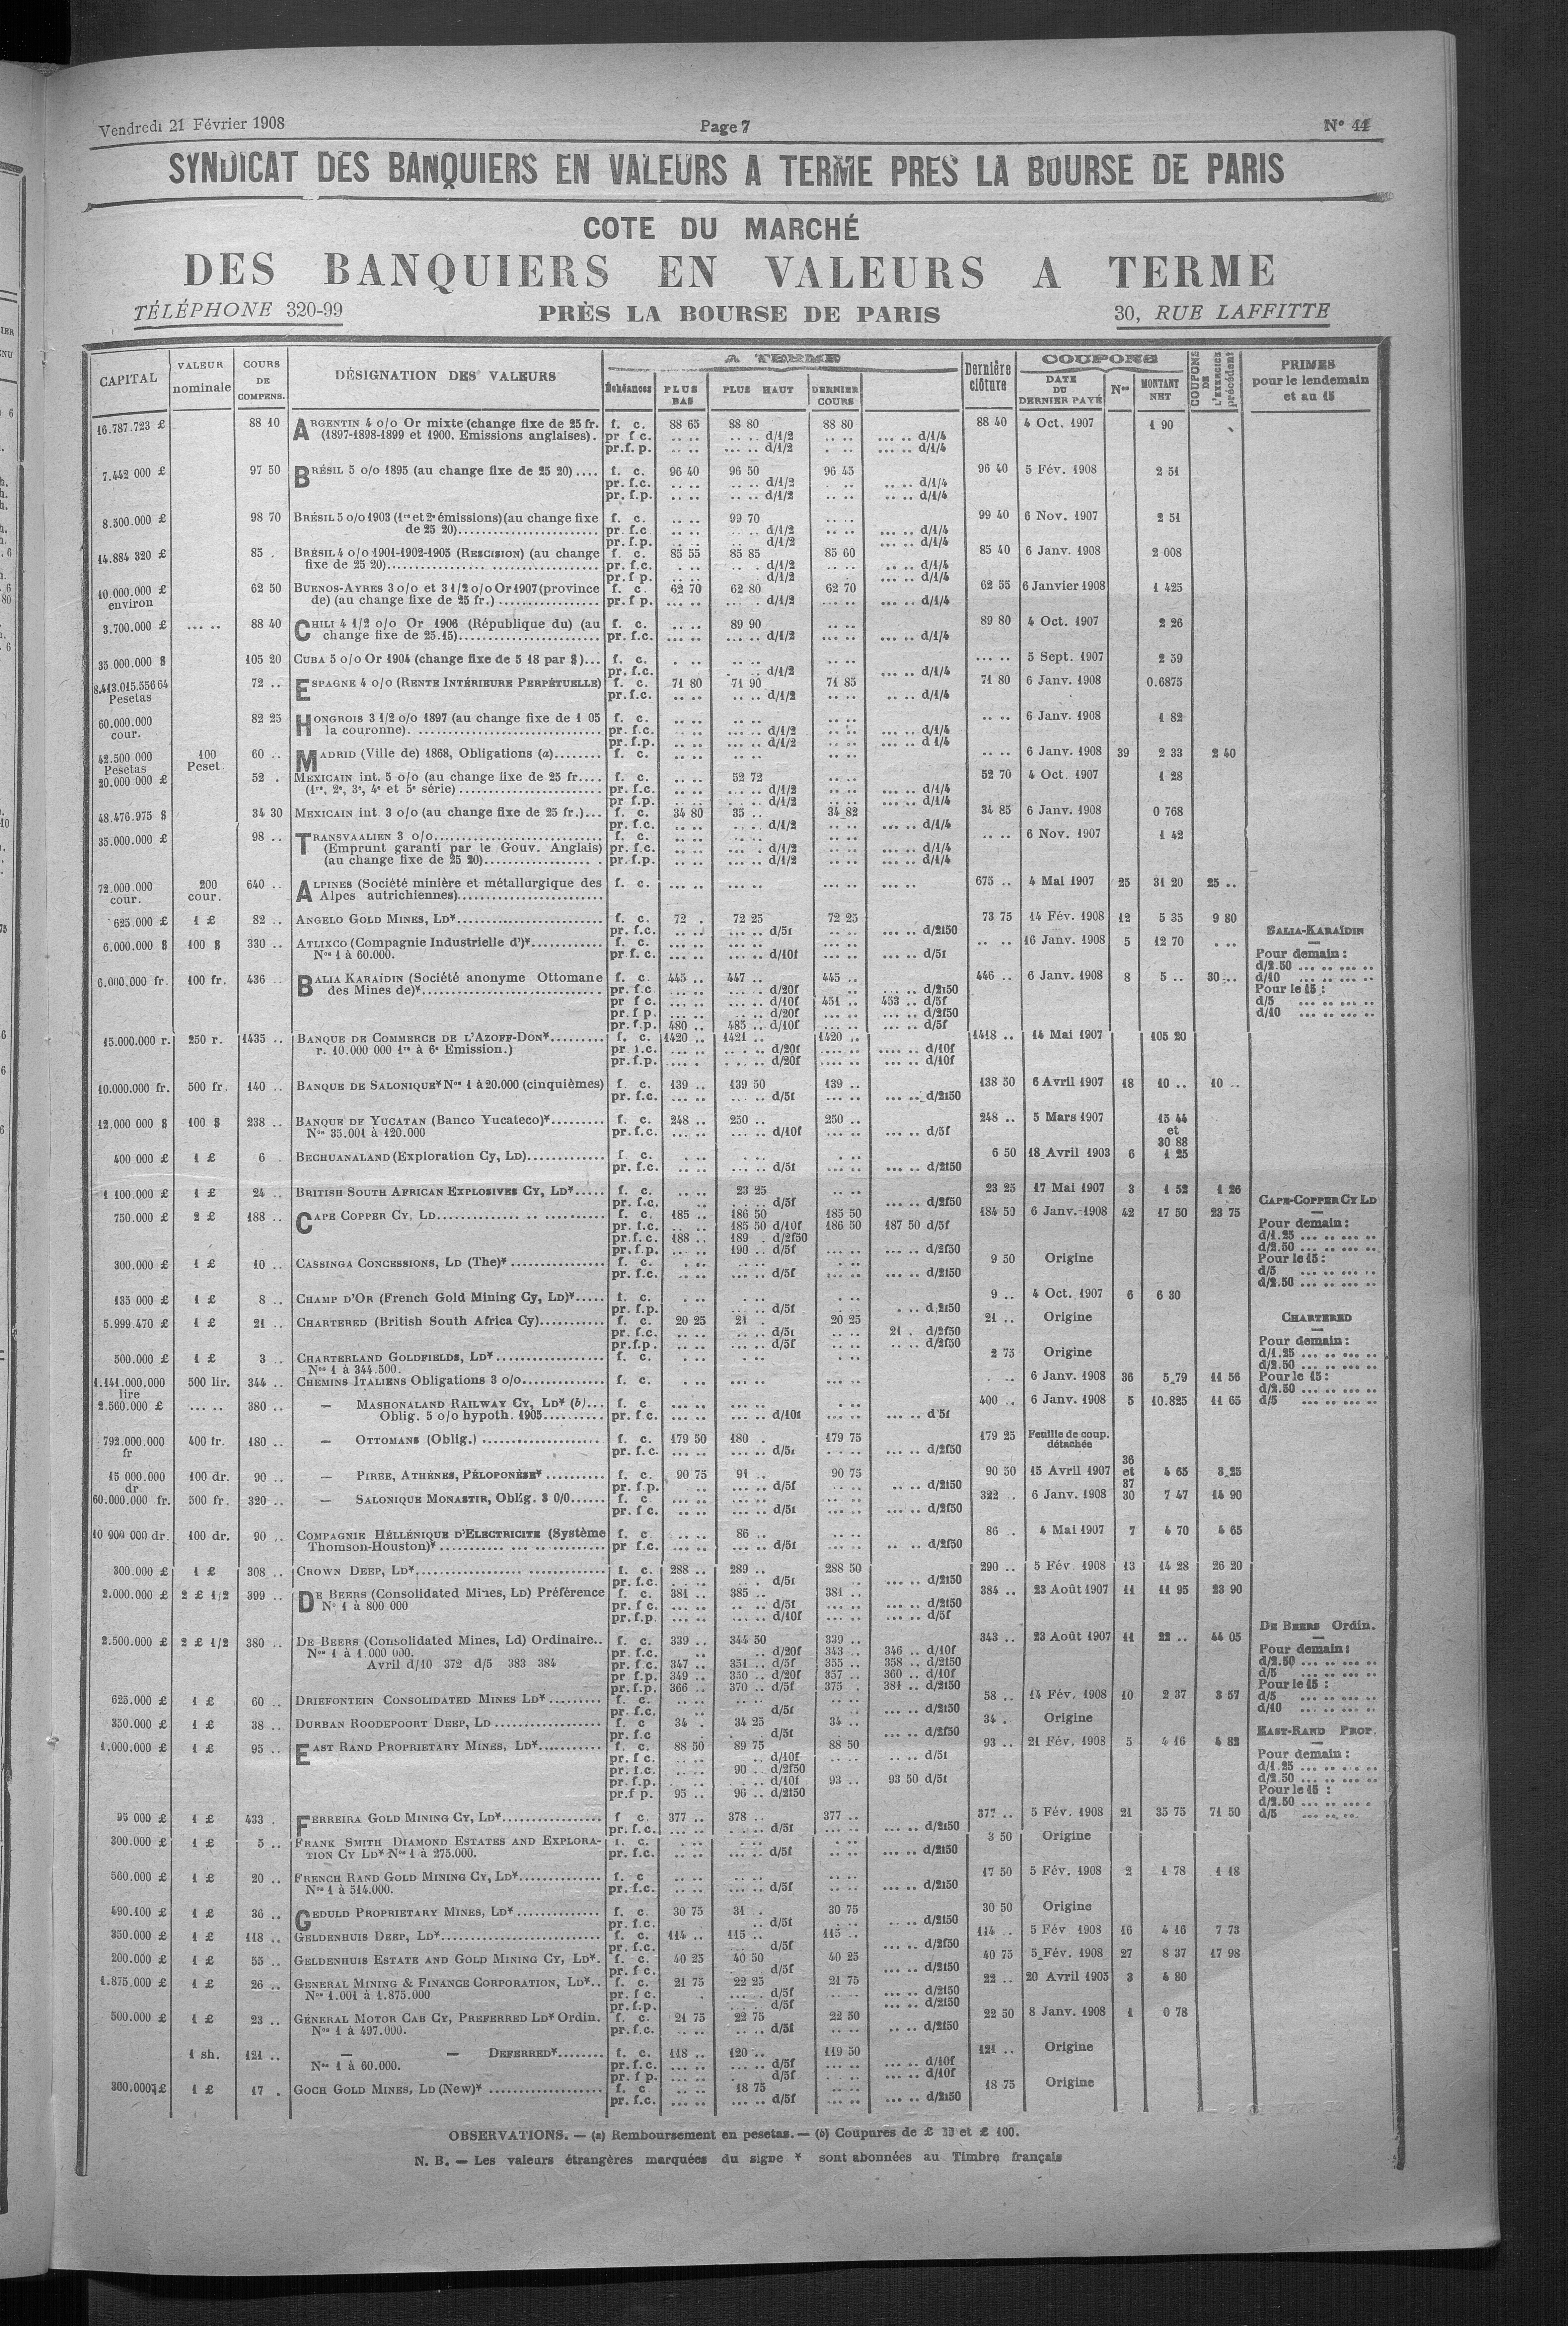 Vendredi 21 Février 1908 Page 7 N° 44
SYNDICAT DES BANQUIERS EN VALEURS A TERME PRES LA BOURSE DE PARIS
COTE DU MARCHÉ
DES BANQUIERS EN VALEURS A TERME
TÉLÉPHONE 320-99 PRÈS LA BOURSE DE PARIS 30, RUE LAFFITTE
CAPITAL VALEUR nominale COURS DE COMPENS. DÉSIGNATION DES VALEURS A TERME Échéances PLUS BAS PLUS HAUT DERNIER COURS Dernière clôture COUPONS DATE DU DERNIER PAYÉ Nos MONTANT NET COUPONS DE L'EXERCICE précédent PRIMES pour le lendemain et au 15
16.787.723 £ 88 10 ARGENTIN 4 o/o Or mixte (change fixe de 25 fr. f. c. 88 65 88 80 88 80 88 40 4 Oct. 1907 1 90
(1897-1898-1899 et 1900. Emissions anglaises). pr f c. d/1/2 d/1/4
pr.f. p. d/1/2 d/1/4
7.442 000 £ 97 50 BRÉSIL 5 o/o 1895 (au change fixe de 25 20) f. c. 96 40 96 50 96 45 96 40 5 Fév. 1908 2 51
pr. f.c. d/1/2 d/1/4
pr. f.p. d/1/2 d/1/4
8.500.000 £ 98 70 BRÉSIL 5 o/o 1903 (1re et 2e émissions) (au change fixe f. c. 99 70 99 40 6 Nov. 1907 2 51
de 25 20) pr. f.c d/1/2 d/1/4
pr. f.p. d/1/2 d/1/4
14.884 320 £ 85 . BRÉSIL 4 o/o 1901-1902-1905 (RESCISION) (au change f. c. 85 55 85 85 85 60 85 40 6 Janv. 1908 2 008
fixe de 25 20) pr. f.c. d/1/2 d/1/4
pr. f p. d/1/2 d/1/4
10.000.000 £ environ 62 50 BUENOS-AYRES 3 o/o et 3 1/2 o/o Or 1907 (province f. c. 62 70 62 80 62 70 62 55 6 Janvier 1908 1 425
de) (au change fixe de 25 fr.) pr. f p. d/1/2 d/1/4
3.700.000 £ 88 40 CHILI 4 1/2 o/o Or 1906 (République du) (au f. c. 89 90 89 80 4 Oct. 1907 2 26
change fixe de 25.15) pr. f.c. d/1/2 d/1/4
35 000.000 $ 105 20 CUBA 5 o/o Or 1904 (change fixe de 5 18 par $) f. c. 5 Sept. 1907 2 59
pr. f.c. d/1/2 d/1/4
8.413.015.556 64 Pesetas 72 .. ESPAGNE 4 o/o (RENTE INTÉRIEURE PERPÉTUELLE) f. c. 71 80 71 90 71 85 71 80 6 Janv. 1908 0.6875
pr. f.c. d/1/2 d/1/4
60.000.000 cour. 82 25 HONGROIS 3 1/2 o/o 1897 (au change fixe de 1 05 f. c. 6 Janv. 1908 1 82
la couronne). pr. f.c. d/1/2 d/1/4
pr. f.p. d/1/2 d 1/4
42.500 000 Pesetas 100 Peset. 60 .. MADRID (Ville de) 1868, Obligations (a) f. c. 6 Janv. 1908 39 2 33 2 40
20.000 000 £ 52 . MEXICAIN int. 5 o/o (au change fixe de 25 fr. f. c. 52 72 52 70 4 Oct. 1907 1 28
(1re, 2e, 3e, 4e et 5e série) pr. f.c. d/1/2 d/1/4
pr f.p. d/1/2 d/1/4
48.476.975 $ 34 30 MEXICAIN int. 3 o/o (au change fixe de 25 fr.) f. c. 34 80 35 .. 34 82 34 85 6 Janv. 1908 0 768
pr. f.c. d/1/2 d/1/4
35.000.000 98 .. TRANSVAALIEN 3 o/o f. c. 6 Nov. 1907 1 42
(Emprunt garanti par le Gouv. Anglais) pr. f.c. d/1/2 d/1/4
(au change fixe de 25 20) pr. f.p. d/1/2 d/1/4
72.000.000 cour. 200 cour. 640 .. ALPINES (Société minière et métallurgique des f. c. 675 .. 4 Mai 1907 25 31 20 25 ..
Alpes autrichiennes)
625.000 £ 1 £ 82 .. ANGELO GOLD MINES, LD* f. c. 72 . 72 25 72 25 73 75 14 Fév. 1908 12 5 35 9 80
pr. f.c. d/5f d/2f50
6.000.000 $ 100 $ 330 .. ATLIXCO (Compagnie Industrielle d')* f. c. 16 Janv. 1908 5 12 70
Nos 1 à 60.000. pr f. c. d/10f d/5f
6.000.000 fr. 100 fr. 436 .. BALIA KARAÏDIN (Société anonyme Ottomane f. c 445 .. 447 .. 445 .. 446 .. 6 Janv. 1908 8 5 .. 30 ..
des Mines de)* pr. f.c d/20f d/2f50
pr f c. d/10f 451 .. 453 .. d/5f
pr. f p. d/20f d/2f50
pr. f.p. 480 .. 485 .. d/10f d/5f
BALIA-KARAÏDIN
Pour demain :
d/2.50
d/10
Pour le 15 :
d/5
d/10
15.000.000 r. 250 r. 1435 .. BANQUE DE COMMERCE DE L'AZOFF-DON* f. c. 1420 .. 1421 .. 1420 .. 1418 .. 14 Mai 1907 105 20
r. 10.000 000 1re à 6e Emission.) pr f.c. d/20f d/10f
pr. f.p. d/20f d/10f
10.000.000 fr. 500 fr. 140 .. BANQUE DE SALONIQUE* Nos 1 à 20.000 (cinquièmes) f. c. 139 .. 139 50 139 .. 138 50 6 Avril 1907 18 10 .. 10 ..
pr. f.c. d/5f d/2f50
12.000 000 $ 100 $ 238 .. BANQUE DE YUCATAN (Banco Yucateco)* f. c. 248 .. 250 .. 250 .. 248 .. 5 Mars 1907 15 44 et 30 88
Nos 35.001 à 120.000 pr. f.c. d/10f d/5f
400 000 £ 1 £ 6 . BECHUANALAND (Exploration Cy, LD) f. c. 6 50 18 Avril 1903 6 1 25
pr. f.c. d/5f d/2f50
1 100.000 £ 1 £ 24 .. BRITISH SOUTH AFRICAN EXPLOSIVES CY, LD* f. c. 23 25 23 25 17 Mai 1907 3 1 52 1 26
pr. f.c. d/5f d/2f50
750.000 £ 2 £ 188 .. CAPE COPPER CY, LD f. c. 185 .. 186 50 185 50 184 50 6 Janv. 1908 42 17 50 23 75
pr. f.c. 185 50 d/10f 186 50 187 50 d/5f
pr.f. c. 188 .. 189 . d/2f50
pr. f.p. 190 .. d/5f d/2f50
CAPE-COPPER CY LD
Pour demain :
d/1.25
d/2.50
Pour le 15 :
d/5
d/2.50
300.000 £ 1 £ 10 .. CASSINGA CONCESSIONS, LD (The)* f. c. 9 50 Origine
pr. f.c. d/5f d/2f50
135 000 £ 1 £ 8 .. CHAMP D'OR (French Gold Mining Cy, LD)* f. c. 9 .. 4 Oct. 1907 6 6 30
pr. f.p. d/5f d.2f50
5.999.470 £ 1 £ 21 .. CHARTERED (British South Africa Cy) f. c. 20 25 21 . 20 25 21 .. Origine
pr. f.c. d/5f 21 . d/2f50
pr.f.p. d/5f d/2f50
CHARTERED
Pour demain :
d/1.25
d/2.50
Pour le 15 :
d/2.50
d/5
500.000 £ 1 £ 3 .. CHARTERLAND GOLDFIELDS, LD* f. c. 2 75 Origine
Nos 1 à 344.500.
1.141.000.000 lire 500 lir. 344 .. CHEMINS ITALIENS Obligations 3 o/o f. c. 6 Janv. 1908 36 5.79 11 56
2.560.000 £ 380 .. — MASHONALAND RAILWAY CY, LD* (b) f. c 400 .. 6 Janv. 1908 5 10.825 11 65
Oblig. 5 o/o hypoth. 1905 pr. f c. d/10f d 5f
792.000.000 fr 400 fr. 180 .. — OTTOMANS (Oblig.) f. c. 179 50 180 . 179 75 179 25 Feuille de coup. détachée
pr. f.c. d/5f d/2f50
15 000.000 dr. 100 dr. 90 .. — PIRÉE, ATHÈNES, PÉLOPONÈSE* f. c. 90 75 91 .. 90 75 90 50 15 Avril 1907 36 et 37 4 65 3.25
pr. f p. d/5f d/2f50
60.000.000 fr. 500 fr. 320 .. — SALONIQUE MONASTIR, Oblig. 3 0/0 f. c 322 . 6 Janv. 1908 30 7 47 14 90
pr. f c. d/5f d/2f50
10 900 000 dr. 100 dr. 90 .. COMPAGNIE HÉLLÉNIQUE D'ELECTRICITE (Système f. c 86 .. 86 .. 4 Mai 1907 7 4 70 4 65
Thomson-Houston)* pr f.c. d/5f d/2f50
300.000 £ 1 £ 308 .. CROWN DEEP, LD* f. c. 288 .. 289 .. 288 50 290 .. 5 Fév 1908 13 14 28 26 20
pr. f.c. d/5f d/2f50
2.000.000 £ 2 £ 1/2 399 .. DE BEERS (Consolidated Mines, LD) Préférence f. c. 381 .. 385 .. 381 .. 384 .. 23 Août 1907 11 11 95 23 90
N° 1 à 800 000 pr. f c. d/5f d/2f50
pr. f.p. d/10f d/5f
2.500.000 £ 2 £ 1/2 380 .. DE BEERS (Consolidated Mines, Ld) Ordinaire.. f. c. 339 .. 344 50 339 .. 343 .. 23 Août 1907 11 22 .. 44 05
Nos 1 à 1.000 000. pr. f.c. d/20f 343 .. 346 .. d/10f
Avril d/10 372 d/5 383 384 pr. f c 347 .. 351 .. d/5f 355 .. 358 .. d/2f50
pr f.p. 349 .. 350 .. d/20f 357 .. 360 .. d/10f
pr. f.p. 366 .. 370 .. d/5f 375 . 381 .. d/2f50
DE BEERS Ordin.
Pour demain :
d/2.50
d/5
Pour le 15 :
d/5
d/10
625.000 £ 1 £ 60 .. DRIEFONTEIN CONSOLIDATED MINES LD* f. c. 58 .. 14 Fév. 1908 10 2 37 3 57
pr. f.c. d/5f d/2f50
350.000 £ 1 £ 38 .. DURBAN ROODEPOORT DEEP, LD f. c 34 . 34 25 34 .. 34 . Origine
pr. f.c d/5f d/2f50
1.000.000 £ 1 £ 95 .. EAST RAND PROPRIETARY MINES, LD* f. c. 88 50 89 75 88 50 93 .. 21 Fév. 1908 5 4 16 4 82
pr. f c. d/10f d/5f
pr. f.c. 90 .. d/2f50
pr. f.p. d/10f 93 .. 93 50 d/5f
pr.f p. 95 .. 96 .. d/2f50
EAST-RAND PROP.
Pour demain :
d/1.25
d/2.50
Pour le 15 :
d/2.50
d/5
95 000 £ 1 £ 433 . FERREIRA GOLD MINING CY, LD* f c. 377 .. 378 .. 377 .. 377 .. 5 Fév. 1908 21 35 75 71 50
pr. f.c. d/5f d/2f50
300.000 £ 1 £ 5 .. FRANK SMITH DIAMOND ESTATES AND EXPLORA- f. c. 3 50 Origine
TION CY LD* Nos 1 à 275.000. pr. f.c. d/5f d/2f50
560.000 £ 1 £ 20 .. FRENCH RAND GOLD MINING CY, LD* f. c 17 50 5 Fév. 1908 2 1 78 1 18
Nos 1 à 514.000. pr. f.c. d/5f d/2f50
490.100 £ 1 £ 36 .. GEDULD PROPRIETARY MINES, LD* f. c. 30 75 31 . 30 75 30 50 Origine
pr. f.c. d/5f d/2f50
350.000 £ 1 £ 118 .. GELDENHUIS DEEP, LD* f. c. 114 .. 115 .. 115 .. 114 .. 5 Fév 1908 16 4 16 7 73
pr. f.c. d/5f d/2f50
200.000 £ 1 £ 55 .. GELDENHUIS ESTATE AND GOLD MINING CY, LD*. f. c. 40 25 40 50 40 25 40 75 5 Fév. 1908 27 8 37 17 98
pr. f c. d/5f d/2f50
1.875.000 £ 1 £ 26 .. GENERAL MINING & FINANCE CORPORATION, LD*.. f. c. 21 75 22 25 21 75 22 .. 20 Avril 1905 3 4 80
Nos 1.001 à 1.875.000 pr. f c. d/5f d/2f50
pr. f.p. d/5f d/2f50
500.000 £ 1 £ 23 .. GENERAL MOTOR CAB CY, PREFERRED LD* Ordin. f. c. 21 75 22 75 22 50 22 50 8 Janv. 1908 1 0 78
Nos 1 à 497.000. pr. f.c. d/5f d/2f50
1 sh. 121 .. — — DEFERRED* f. c. 118 .. 120 .. 119 50 121 .. Origine
Nos 1 à 60.000. pr. f. c. d/5f d/10f
pr. f p. d/5f d/10f
300.000 £ 1 £ 17 . GOCH GOLD MINES, LD (New)* f. c 18 75 18 75 Origine
pr. f.c. d/5f d/2f50
OBSERVATIONS. — (a) Remboursement en pesetas. — (b) Coupures de £ et £ 100.
N. B. — Les valeurs étrangères marquées du signe * sont abonnées au Timbre français